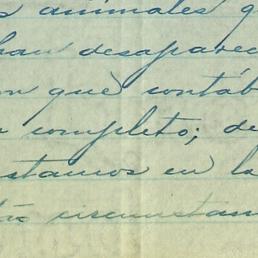 s animales q
han desaparec
on que contáb
completo; de
stamos en la
circunstan